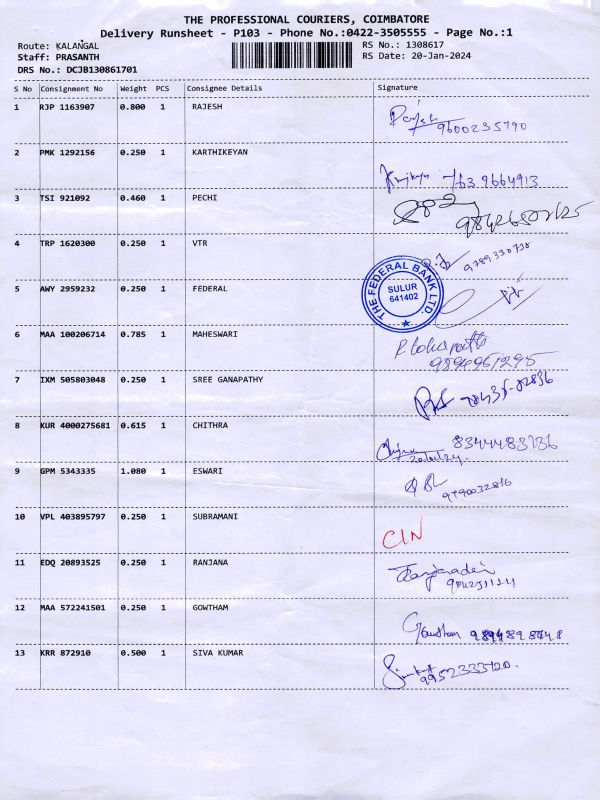 THE PROFESSIONAL COURIERS, COIMBATORE
Delivery Runsheet - P103 - Phone No.:0422-3505555 - Page No.:1
Route: KALANGAL
RS No.: 1308617
Staff: PRASANTH
RS Date: 20-Jan-2024
DRS No.: DCJB130861701
S No Consignment No Weight PCS Consignee Details Signature
1 RJP 1163907 0.800 1 RAJESH
9600235790
2 PMK 1292156 0.250 1 KARTHIKEYAN
763 9664913
3 TSI 921092 0.460 1 PECHI
4 TRP 1620300 0.250 1 VTR
THE FEDERAL BANK LTD.
SULUR
641402
5 AWY 2959232 0.250 1 FEDERAL
6 MAA 100206714 0.785 1 MAHESWARI
7 IXM 505803048 0.250 1 SREE GANAPATHY
8 KUR 4000275681 0.615 1 CHITHRA
8344483736
9 GPM 5343335 1.080 1 ESWARI
9790032816
10 VPL 403895797 0.250 1 SUBRAMANI
CIN
11 EDQ 20893525 0.250 1 RANJANA
12 MAA 572241501 0.250 1 GOWTHAM
Gowtham 9894898748
13 KRR 872910 0.500 1 SIVA KUMAR